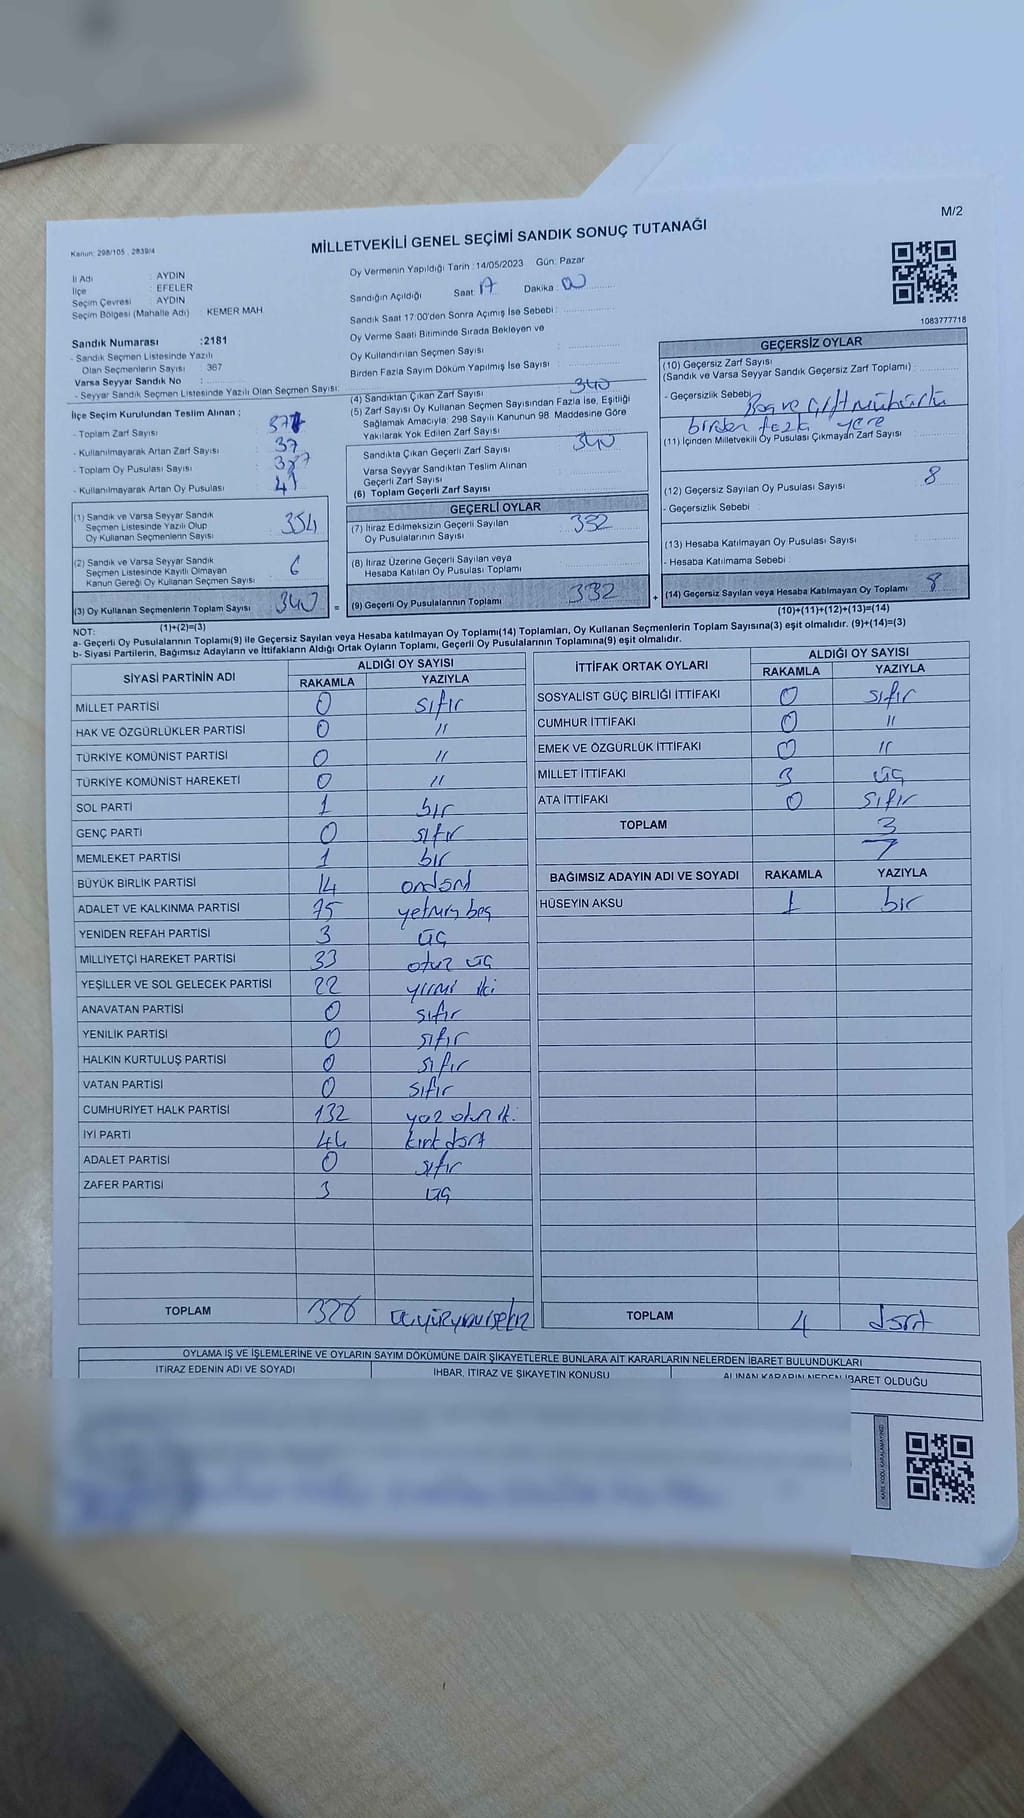 M/2
Kanun: 298/105 , 2839/4
MİLLETVEKİLİ GENEL SEÇİMİ SANDIK SONUÇ TUTANAĞI
İl Adı : AYDIN
İlçe : EFELER
Seçim Çevresi : AYDIN
Seçim Bölgesi (Mahalle Adı) : KEMER MAH
Sandık Numarası :2181
- Sandık Seçmen Listesinde Yazılı
Olan Seçmenlerin Sayısı : 367
Varsa Seyyar Sandık No :
- Seyyar Sandık Seçmen Listesinde Yazılı Olan Seçmen Sayısı:
Oy Vermenin Yapıldığı Tarih : 14/05/2023 Gün: Pazar
Sandığın Açıldığı Saat: 17 Dakika : 00
Sandık Saat 17:00'den Sonra Açımış İse Sebebi :
Oy Verme Saati Bitiminde Sırada Bekleyen ve
Oy Kullandırılan Seçmen Sayısı :
Birden Fazla Sayım Döküm Yapılmış İse Sayısı :
1083777718
İlçe Seçim Kurulundan Teslim Alınan ;
- Toplam Zarf Sayısı :
- Kullanılmayarak Artan Zarf Sayısı : 37
- Toplam Oy Pusulası Sayısı :
- Kullanılmayarak Artan Oy Pusulası : 41
(1) Sandık ve Varsa Seyyar Sandık
Seçmen Listesinde Yazılı Olup
Oy Kullanan Seçmenlerin Sayısı : 354
(2) Sandık ve Varsa Seyyar Sandık
Seçmen Listesinde Kayıtlı Olmayan
Kanun Gereği Oy Kullanan Seçmen Sayısı : 6
(3) Oy Kullanan Seçmenlerin Toplam Sayısı : 340 =
(1)+(2)=(3)
(4) Sandıktan Çıkan Zarf Sayısı : 340
(5) Zarf Sayısı Oy Kullanan Seçmen Sayısından Fazla İse, Eşitliği
Sağlamak Amacıyla, 298 Sayılı Kanunun 98. Maddesine Göre
Yakılarak Yok Edilen Zarf Sayısı :
Sandıkta Çıkan Geçerli Zarf Sayısı : 340
Varsa Seyyar Sandıktan Teslim Alınan
Geçerli Zarf Sayısı :
(6) Toplam Geçerli Zarf Sayısı
GEÇERLİ OYLAR
(7) İtiraz Edilmeksizin Geçerli Sayılan
Oy Pusulalarının Sayısı : 332
(8) İtiraz Üzerine Geçerli Sayılan veya
Hesaba Katılan Oy Pusulası Toplamı :
(9) Geçerli Oy Pusulalarının Toplamı : 332 +
GEÇERSİZ OYLAR
(10) Geçersiz Zarf Sayısı
(Sandık ve Varsa Seyyar Sandık Geçersiz Zarf Toplamı) :
- Geçersizlik Sebebi : Boş ve çift mühürlü
birden fazla yere
(11) İçinden Milletvekili Oy Pusulası Çıkmayan Zarf Sayısı :
(12) Geçersiz Sayılan Oy Pusulası Sayısı : 8
- Geçersizlik Sebebi :
(13) Hesaba Katılmayan Oy Pusulası Sayısı :
- Hesaba Katılmama Sebebi :
(14) Geçersiz Sayılan veya Hesaba Katılmayan Oy Toplamı : 8
(10)+(11)+(12)+(13)=(14)
NOT:
a- Geçerli Oy Pusulalarının Toplamı(9) ile Geçersiz Sayılan veya Hesaba katılmayan Oy Toplamı(14) Toplamları, Oy Kullanan Seçmenlerin Toplam Sayısına(3) eşit olmalıdır. (9)+(14)=(3)
b- Siyasi Partilerin, Bağımsız Adayların ve İttifakların Aldığı Ortak Oyların Toplamı, Geçerli Oy Pusulalarının Toplamına(9) eşit olmalıdır.
SİYASİ PARTİNİN ADI ALDIĞI OY SAYISI
RAKAMLA YAZIYLA
MİLLET PARTİSİ 0 sıfır
HAK VE ÖZGÜRLÜKLER PARTİSİ 0 "
TÜRKİYE KOMÜNİST PARTİSİ 0 "
TÜRKİYE KOMÜNİST HAREKETİ 0 "
SOL PARTİ 1 bir
GENÇ PARTİ 0 sıfır
MEMLEKET PARTİSİ 1 bir
BÜYÜK BİRLİK PARTİSİ 14 ondört
ADALET VE KALKINMA PARTİSİ 75 yetmiş beş
YENİDEN REFAH PARTİSİ 3 üç
MİLLİYETÇİ HAREKET PARTİSİ 33 otuz üç
YEŞİLLER VE SOL GELECEK PARTİSİ 22 yirmi iki
ANAVATAN PARTİSİ 0 sıfır
YENİLİK PARTİSİ 0 sıfır
HALKIN KURTULUŞ PARTİSİ 0 sıfır
VATAN PARTİSİ 0 sıfır
CUMHURİYET HALK PARTİSİ 132 yüz otuz iki
İYİ PARTİ 44 kırk dört
ADALET PARTİSİ 0 sıfır
ZAFER PARTİSİ 3 üç
TOPLAM 328 üçyüzyirmisekiz
İTTİFAK ORTAK OYLARI ALDIĞI OY SAYISI
RAKAMLA YAZIYLA
SOSYALİST GÜÇ BİRLİĞİ İTTİFAKI 0 sıfır
CUMHUR İTTİFAKI 0 "
EMEK VE ÖZGÜRLÜK İTTİFAKI 0 "
MİLLET İTTİFAKI 3 üç
ATA İTTİFAKI 0 sıfır
TOPLAM 3
BAĞIMSIZ ADAYIN ADI VE SOYADI RAKAMLA YAZIYLA
HÜSEYİN AKSU 1 bir
TOPLAM 4 dört
OYLAMA İŞ VE İŞLEMLERİNE VE OYLARIN SAYIM DÖKÜMÜNE DAİR ŞİKAYETLERLE BUNLARA AİT KARARLARIN NELERDEN İBARET BULUNDUKLARI
İTİRAZ EDENİN ADI VE SOYADI İHBAR, İTİRAZ VE ŞİKAYETİN KONUSU ALINAN KARARIN NEDEN İBARET OLDUĞU
KARE KODU KARALAMAYINIZ!